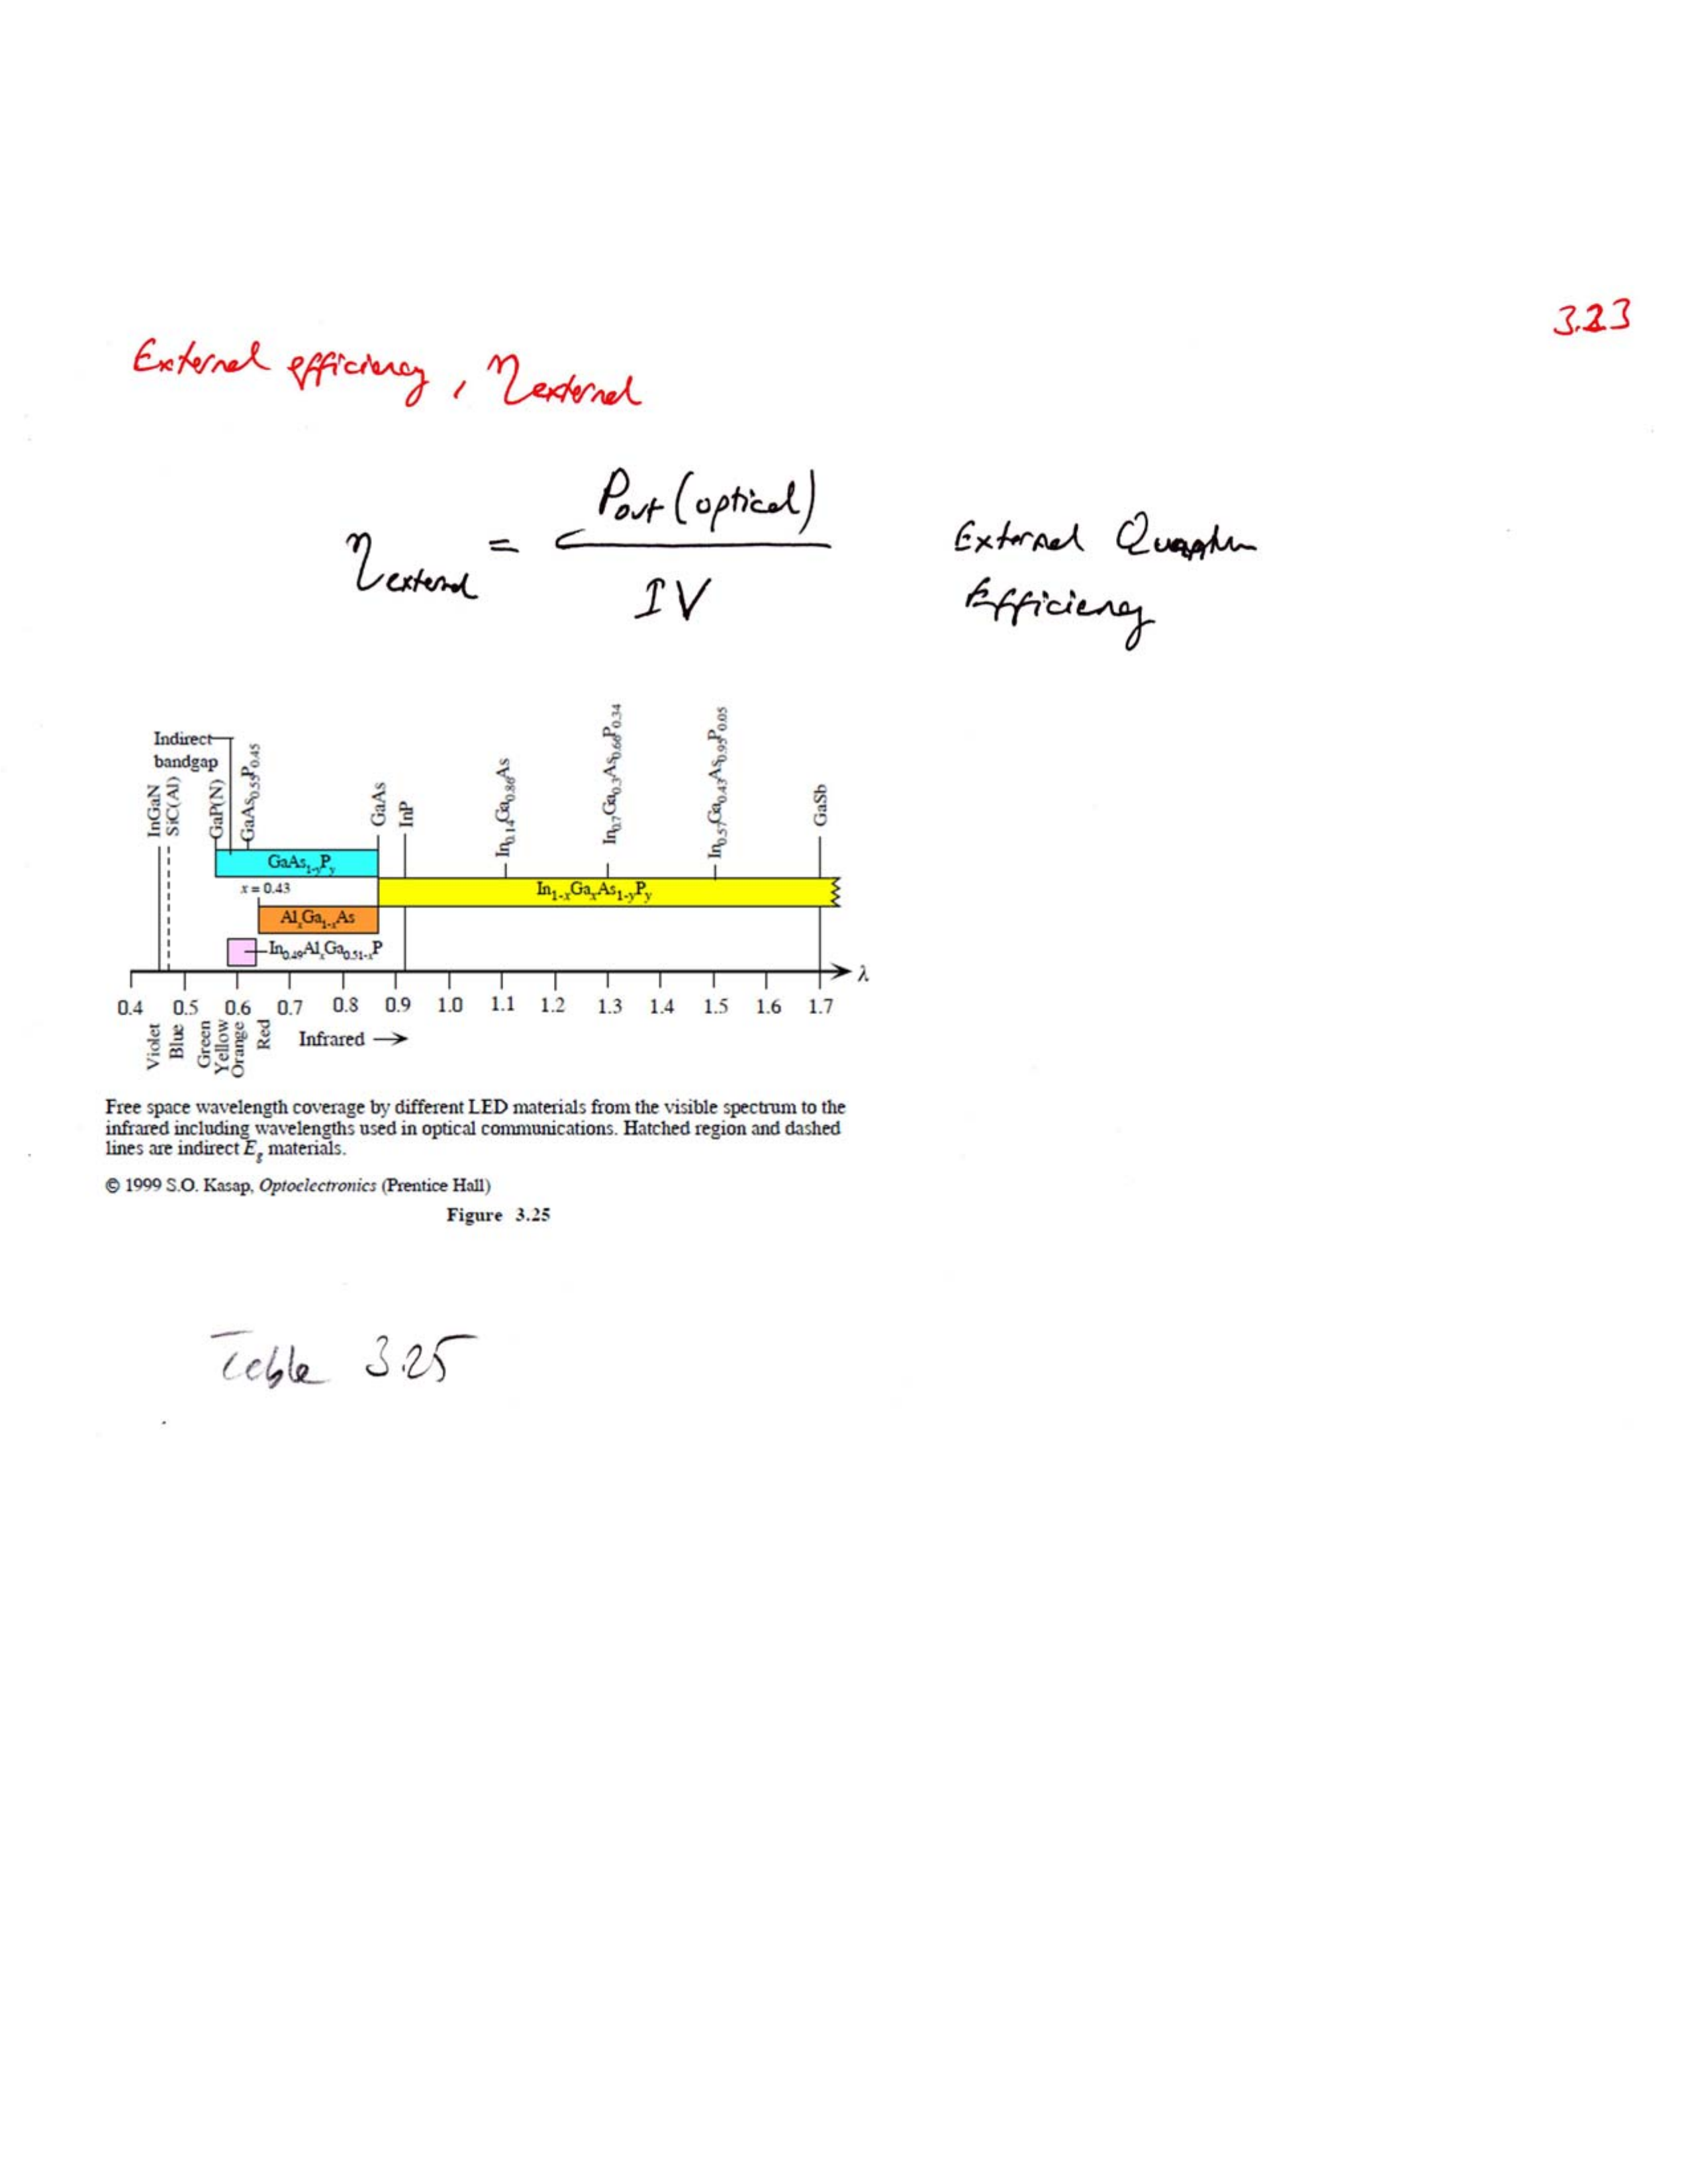 3.23
External efficiency, ηexternal
ηexternal = Pout (optical) / IV
External Quantum
Efficiency
Indirect
bandgap
InGaN
SiC(Al)
GaP(N)
GaAs0.55P0.45
GaAs
InP
In0.14Ga0.86As
In0.7Ga0.3As0.66P0.34
In0.57Ga0.43As0.95P0.05
GaSb
GaAs1-yPy
x = 0.43
In1-xGaxAs1-yPy
AlxGa1-xAs
In0.49AlxGa0.51-xP
λ
0.4 0.5 0.6 0.7 0.8 0.9 1.0 1.1 1.2 1.3 1.4 1.5 1.6 1.7
Violet
Blue
Green
Yellow
Orange
Red
Infrared
Free space wavelength coverage by different LED materials from the visible spectrum to the
infrared including wavelengths used in optical communications. Hatched region and dashed
lines are indirect Eg materials.
© 1999 S.O. Kasap, Optoelectronics (Prentice Hall)
Figure 3.25
Table 3.25